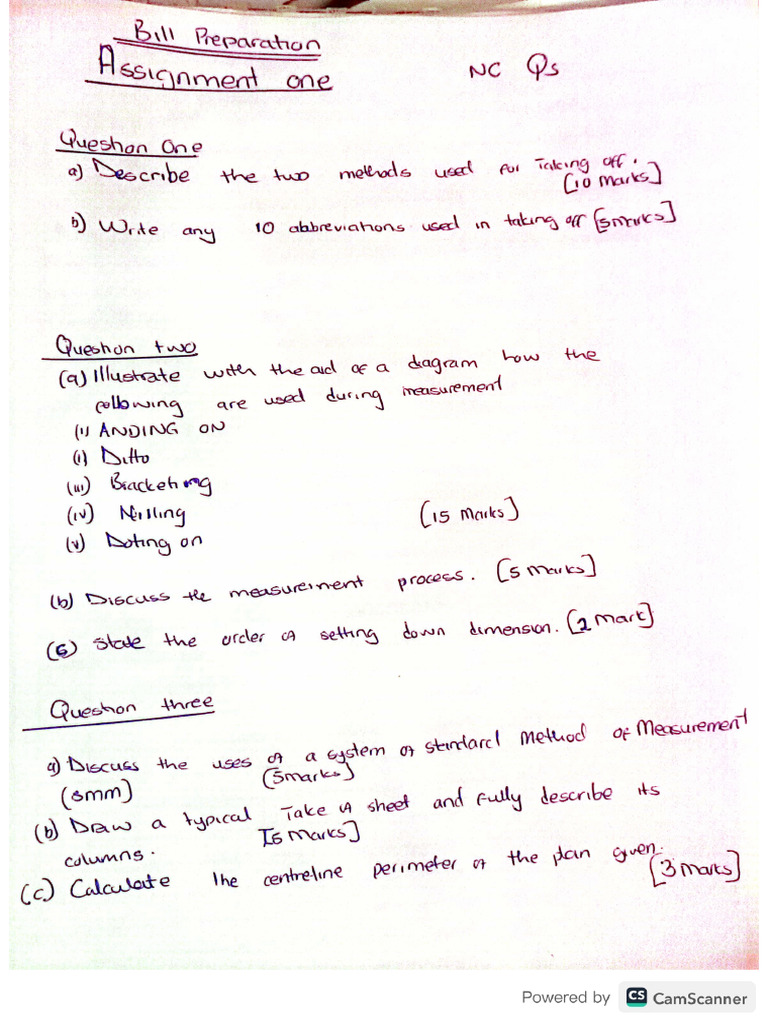 Bill Preparation
Assignment one
NC Qs
Question One
a) Describe the two methods used for Taking off.
[10 marks]
b) Write any 10 abbreviations used in taking off [5marks]
Question two
(a) Illustrate with the aid of a diagram how the
following are used during measurement
(i) ANDING ON
(i) Ditto
(iii) Bracketing
(iv) Nilling
[15 Marks]
(v) Doting on
(b) Discuss the measurement process. [5 marks]
(c) State the order of setting down dimension. [2 mark]
Question three
a) Discuss the uses of a system of standard Method of Measurement
(smm) (5marks)
(b) Draw a typical Take of sheet and fully describe its
columns. [5 Marks]
(c) Calculate the centreline perimeter of the plan given.
[3 marks]
Powered by CS CamScanner